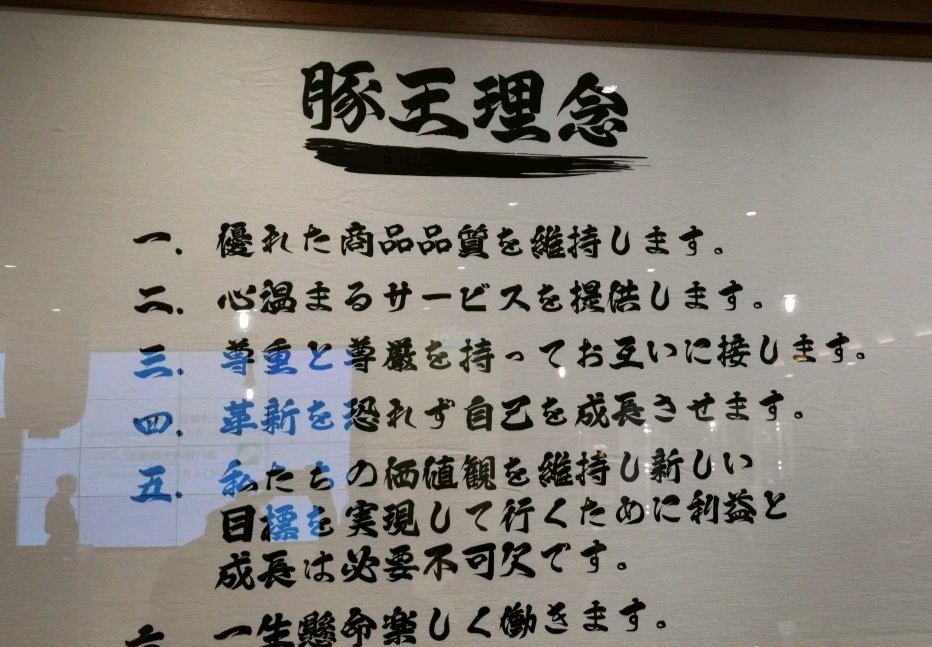 豚王理念
一. 優れた商品品質を維持します。
二. 心温まるサービスを提供します。
三. 尊重と尊厳を持ってお互いに接します。
四. 革新を恐れず自己を成長させます。
五. 私たちの価値観を維持し新しい
目標を実現して行くために利益と
成長は必要不可欠です。
六. 一生懸命楽しく働きます。